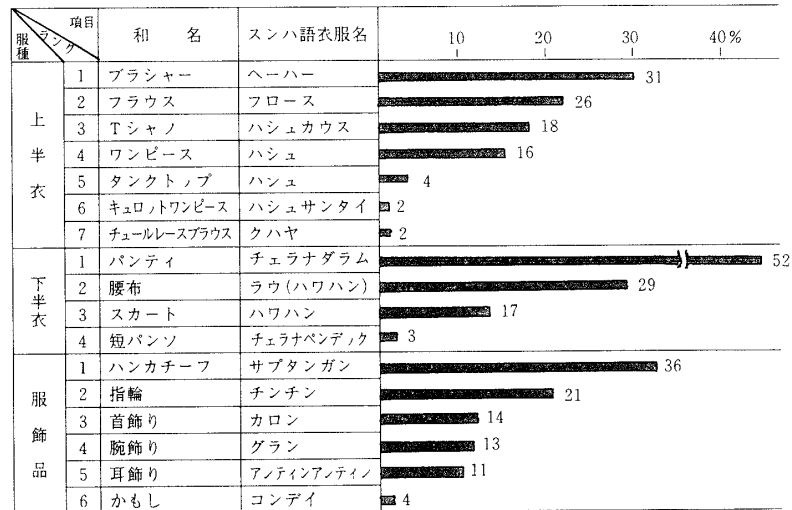 服種 ランク 項目 和名 スンハ語衣服名 10 20 30 40%
上半衣
1 ブラシャー ヘーハー 31
2 フラウス フロース 26
3 Tシャノ ハシュカウス 18
4 ワンピース ハシュ 16
5 タンクトップ ハンュ 4
6 キュロットワンピース ハシュサンタイ 2
7 チュールレースブラウス クハヤ 2
下半衣
1 パンティ チェラナダラム 52
2 腰布 ラウ(ハワハン) 29
3 スカート ハワハン 17
4 短パンソ チェラナペンデック 3
服飾品
1 ハンカチーフ サプタンガン 36
2 指輪 チンチン 21
3 首飾り カロン 14
4 腕飾り グラン 13
5 耳飾り アノティンアノティノ 11
6 かもし コンデイ 4